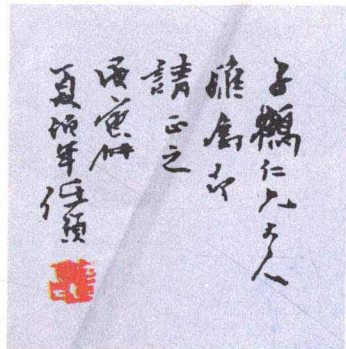 子鶴仁兄大人
雅屬即
請正之
丙寅仲
夏伯年任頤